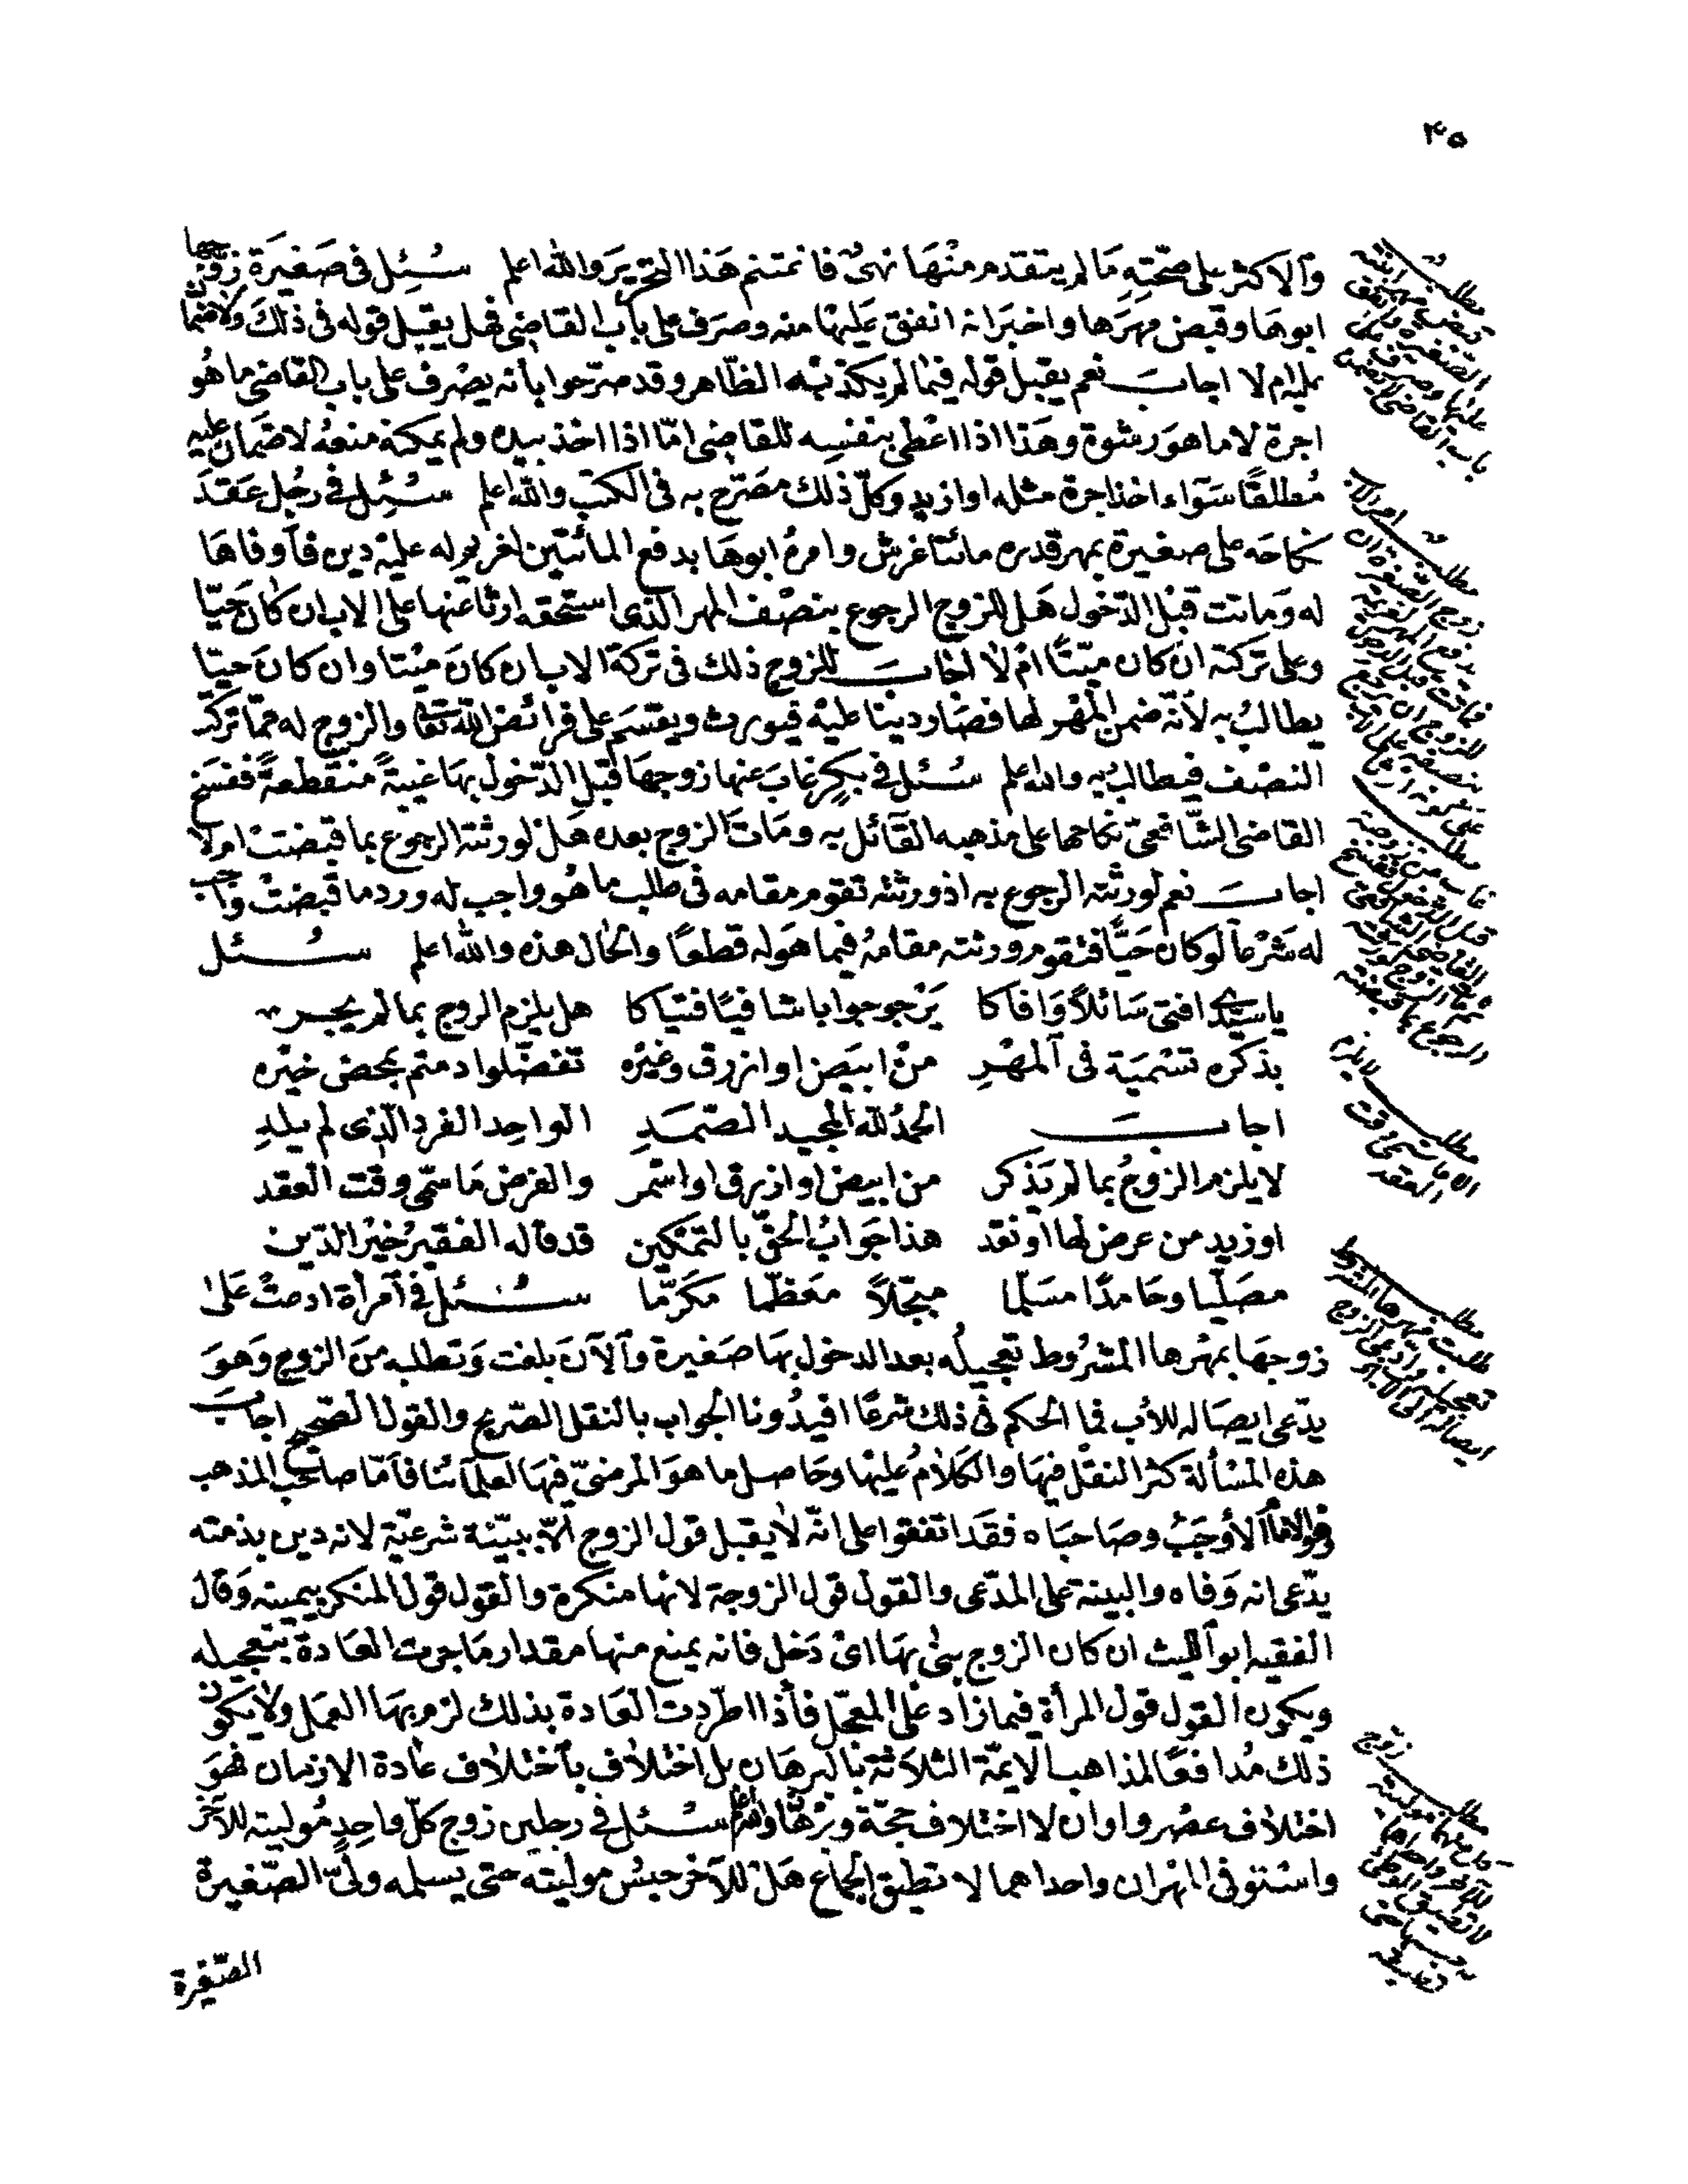 ٤٥
والاكثر على صحّتِهِ مَا لم يتقدم منْهَا نهىٌ فاغتنم هَذا التحريرَ والله اعلم سُئِل فى صَغيرَة زوّجها
ابوهَا وقبض مهرَها واخبرَ انه انفق عَليْها منه وصرَف على باب القاضى فهل يقبل قوله فى ذلكَ ولا ضمان
عليه ام لا اجابَ نعم يقبل قوله فيما لم يكذبْه الظّاهر وقد صرّحوا بأنه يصْرف على باب القاضى ما هُو
اجرة لا ما هوَ رشوة وهَذا اذا اعْطى بنفسِه للقاضى امّا اذا اخذ بيده ولم يمكنه منعهُ لا ضمان عليه
مُطلقًا سَوَاء اخذ اجرة مثله او ازيد وكلّ ذلك مصَرّح به فى الكتب والله اعلم سُئِل فى رجُل عَقدَ
نكاحَه على صغيرة بمهر قدره مائتا غرش وامرهُ ابوهَا بدفع المائتين لغريم له عليْه دين فأوفاها
له وَماتت قبْل الدّخول هَل للزوج الرجوع بنصْف المهر الذى استحقه ارثا عنها على الاب ان كانَ حيّا
وعلى تركته ان كان ميّتًا امْ لا اجابَ للزوج ذلك فى تركة الاب ان كانَ ميْتا وان كانَ حيّا
يطالبُ به لأنّه ضمن المهْر لها فصَار دينا عليْه فيورث ويقسَم على فرائض الله تعا والزوج له ممّا تركه
النصْف فيطالبُ به والله اعلم سُئل فى بكرٍ غابَ عنها زوجهَا قبْل الدّخول بهَا غيبَةً منقطعةً ففسَخ
القاضى الشّافعىّ نكاحها على مذهبه القائل به ومَاتَ الزوج بعده هَلْ لورثته الرجوع بما قبضتْ ام لا
اجابَ نعم لورثته الرجوع به اذ ورثته تقوم مقامه فى طلب ما هُو واجب له ورد ما قبضتْ واجب
له شَرْعًا لو كان حَيًّا فتقوم ورثته مقامهُ فيما هوَ له قطعًا والحال هذه والله اعلم سُئل
ياسيّدى افتى سَائلاً وَافاكا يَرْجو جوابا شافيًا فتياكا هل يلزم الزوج بما لم يجر
بذكره تسْميَة فى المهْرِ منْ ابيَض او ازرق وغيْره تفضّلوا دمتم بمحض خيْره
اجابَ الحمْدُ لله المجيد الصّمَدِ الواحِد الفرد الّذى لم يلدِ
لا يلزم الزوجُ بما لم يَذكر من ابيض او ازرق او اسْمر والفرض مَا سمّى وقت العقد
او زيد من عرض لها او نقد هذا جَوابُ الحقّ بالتمْكين قد قاله الفقيرُ خيْرُ الدّين
مصَلّيا وحَامدًا مسَلّما مبَجّلاً معَظّما مكَرّما سُئل فى امرأة ادعتْ عَلى
زوجهَا بمهْرها المشرُوط تعجيلُه بعد الدخول بهَا صَغيرة والآنَ بلغت وَتطلبه منَ الزوج وَهوَ
يدّعى ايصَاله للأب فما الحكم فى ذلك شرعًا افيدُونا الجواب بالنقل الصّريح والقول الصّحيح اجابَ
هذه المسْألة كثر النقل فيهَا والكلامُ عليْها وحَاصل ما هوَ المرضىّ فيهَا لعلمآئنا فأمّا صاحب المذهب
والامام الأوحَدُ وصَاحبَاه فقَد اتفقوا على انّه لا يقبل قول الزوج الاّ ببيّنة شرعيّة لانه دين بذمته
يدّعى انه وَفاه والبينة على المدّعى والقول قول الزوجة لانها منكرة والقول قول المنكر بيمينه وَقال
الفقيه ابو الليث ان كان الزوج بنى بهَا اىْ دَخل فانه يمنع منها مقدار مَا جرت العَادة بتعجيله
ويكون القول قول المرأة فيما زاد على المعجّل فأذا اطّردت العَادة بذلك لزم بهَا العمل ولا يكون
ذلك مُدافعًا لمذاهب الايمّة الثلاثة بالبرهَان بل اختلاف بأختلاف عادة الازمان فهوَ
اختلاف عصْر واوان لا اختلاف حجّة وبرْهان والله اعلم سُئل فى رجلين زوج كلّ واحِدٍ مُوليته للآخر
واسْتوفى المهْران واحداهما لا تطيق الجماع هَلْ للآخر حبسُ موليته حتى يسلمه ولىّ الصّغيرة
الصّغيرة
مطلب
مطلب
مطلب
مطلب
العقد
مطلب
مطلب